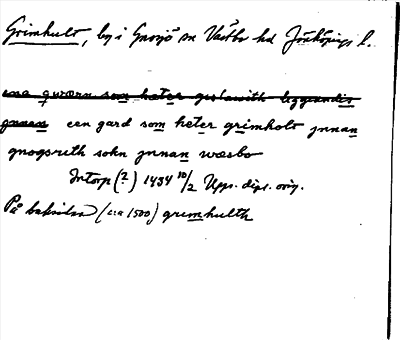 Grimhult, by i Gnosjö sn Västbo hd Jönköpings l.
ena qwærn som heter gislawith liggiandis
jnnan een gard som heter grimholt jnnan
gnogsrith sokn jnnan wæsbo
Intorp (?) 1434 10/2 Upps. dipl. orig.
På baksidan (ca 1500) grimhulth